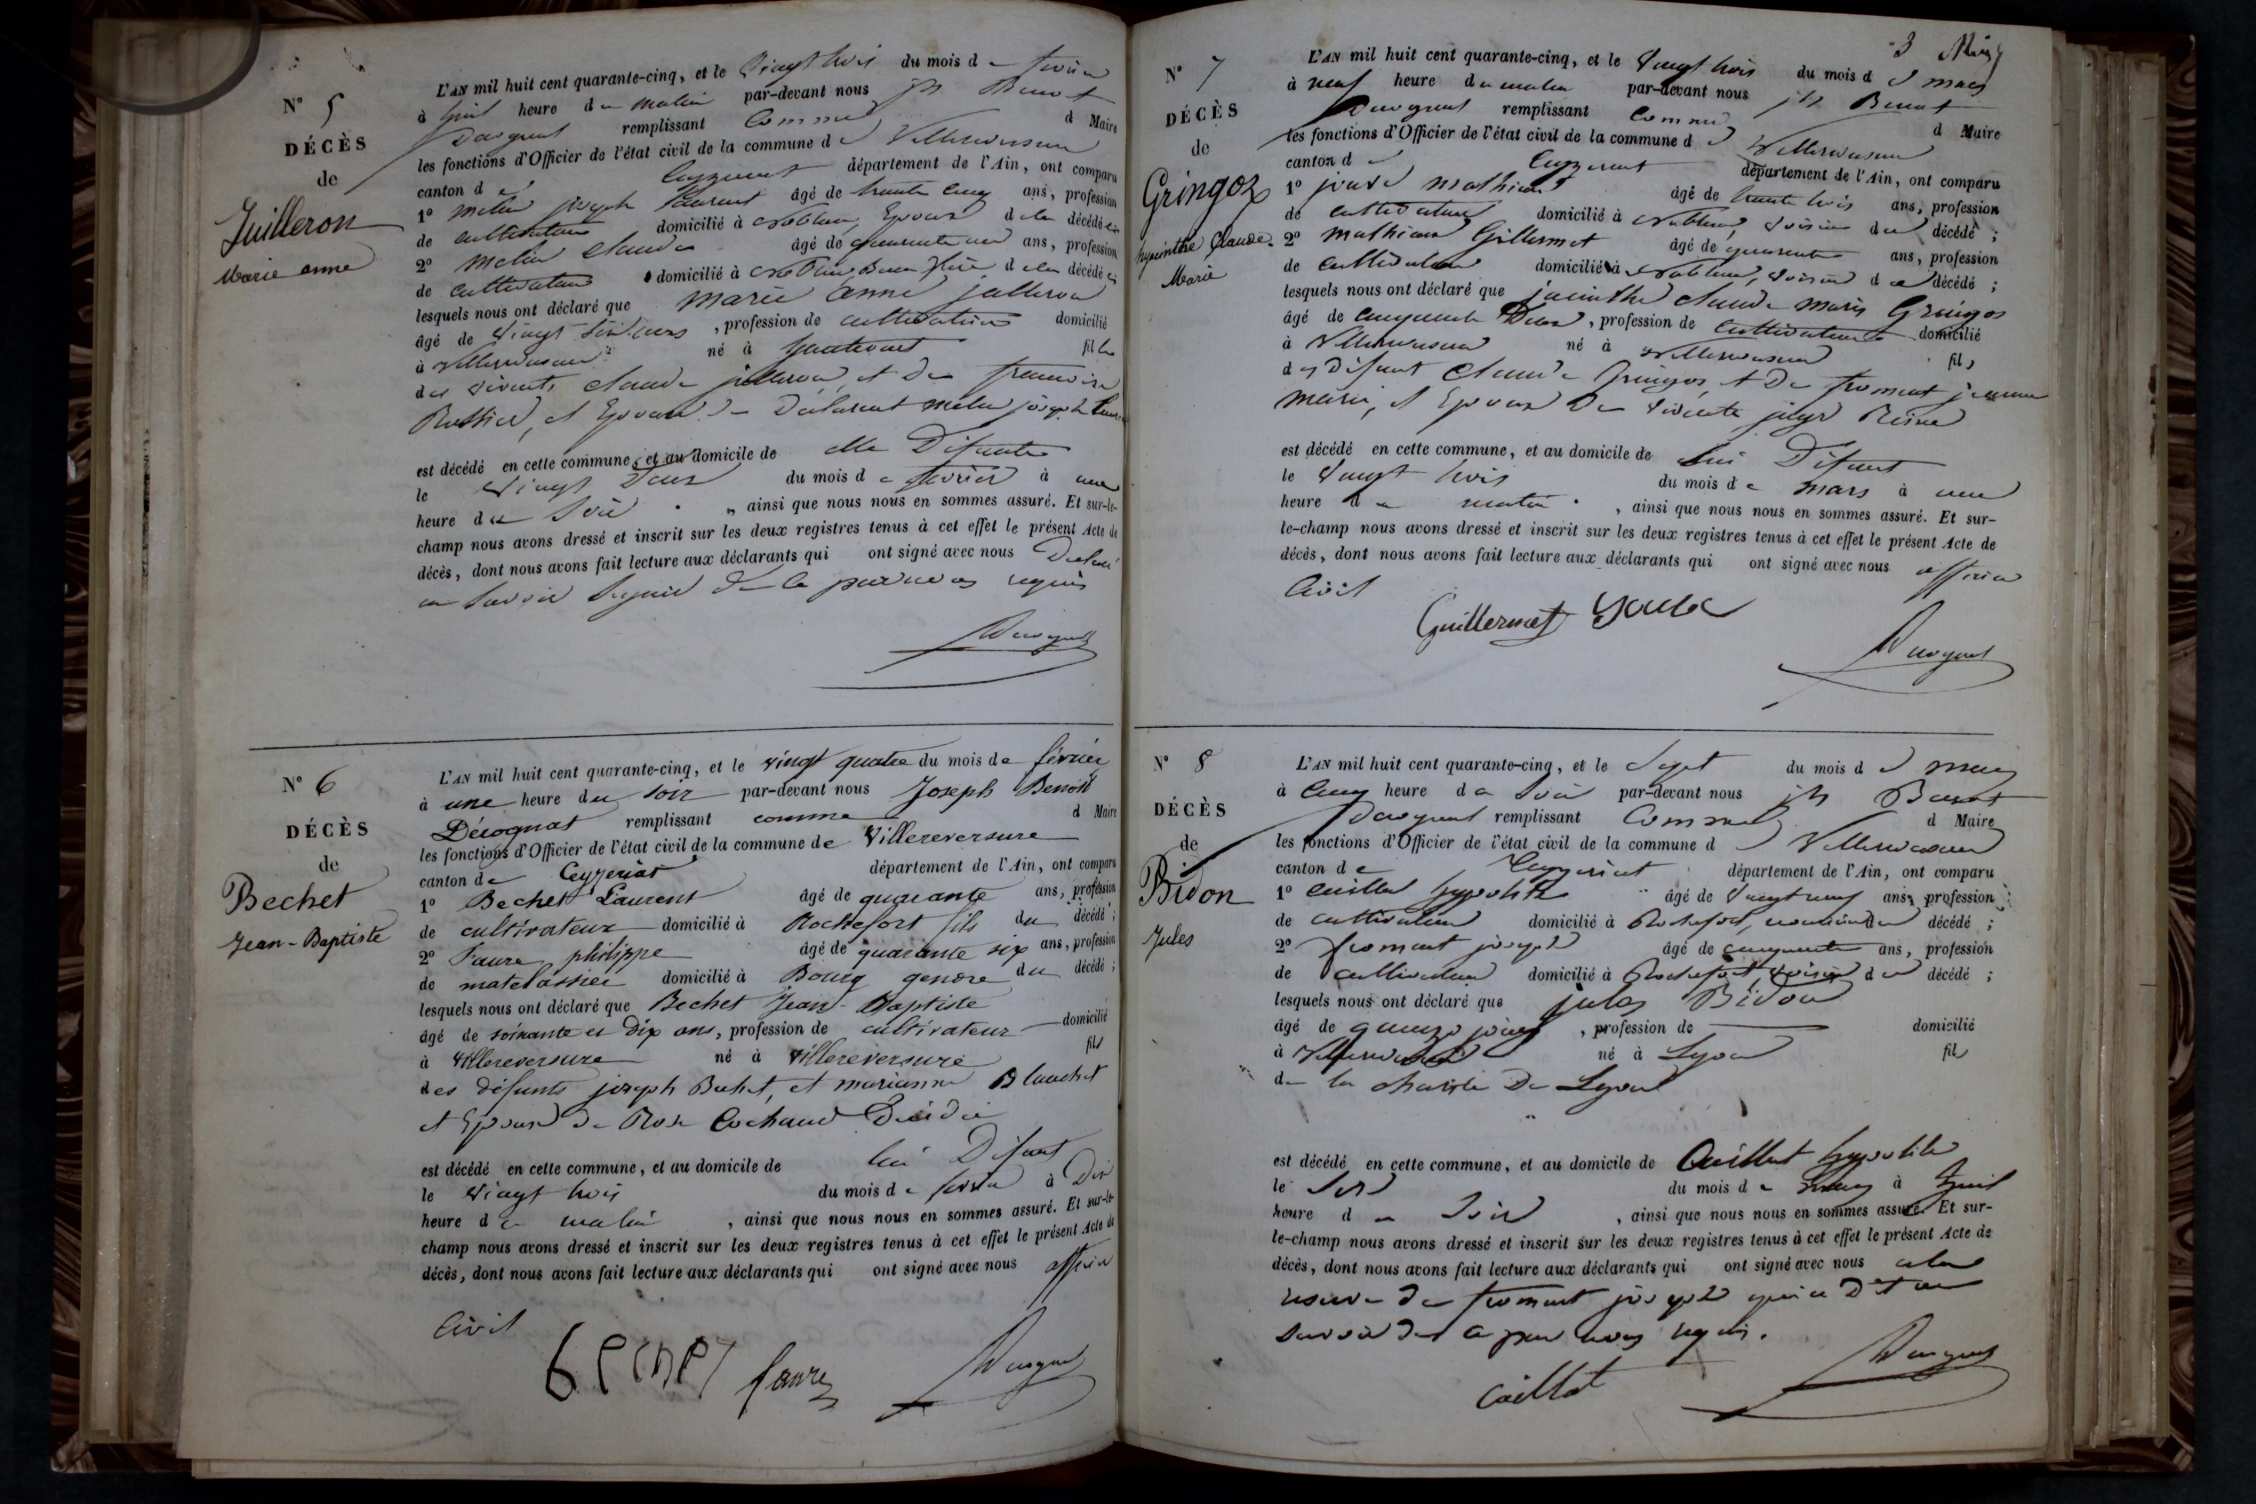 N° 5
DÉCÈS
de
Juilleron
Marie anne
L'AN mil huit cent quarante-cinq, et le vingt trois du mois de février
à huit heure du matin par-devant nous jh Benoit
remplissant comme d Maire
les fonctions d'Officier de l'état civil de la commune de Villereversure
canton de Ceyzeriat département de l'Ain, ont comparu
1° joseph Laurent âgé de trente cinq ans, profession
de cultivateur domicilié à Epoux de la décédée
2° claude âgé de quarante ans, profession
de cultivateur domicilié à Beau frère de la décédée
lesquels nous ont déclaré que marie anne juilleron
âgé de vingt ans, profession de cultivatrice domicilié
à Villereversure né à hautecourt fille
des vivants claude juilleron, et de françoise
et Epouse de Déclarant joseph Laurent
est décédé en cette commune, et au domicile de elle Défunte
le vingt deux du mois de février à une
heure du soir, ainsi que nous nous en sommes assuré. Et sur-le-
champ nous avons dressé et inscrit sur les deux registres tenus à cet effet le présent Acte de
décès, dont nous avons fait lecture aux déclarants qui ont signé avec nous
savoir signé de ce par nous requis
N° 6
DÉCÈS
de
Bechet
Jean-Baptiste
L'AN mil huit cent quarante-cinq, et le vingt quatre du mois de février
à une heure du soir par-devant nous Joseph Benoit
Décognat remplissant comme d Maire
les fonctions d'Officier de l'état civil de la commune de Villereversure
canton de Ceyzeriat département de l'Ain, ont comparu
1° Bechet Laurent âgé de quarante ans, profession
de cultivateur domicilié à Rochefort fils du décédé ;
2° Faure philippe âgé de quarante six ans, profession
de matelassier domicilié à Bourg gendre du décédé ;
lesquels nous ont déclaré que Bechet Jean-Baptiste
âgé de soixante et dix ans, profession de cultivateur domicilié
à Villereversure né à Villereversure fils
des défunts joseph Bechet, et marianne Blanchet
et Epoux de Rose Cochaud Décédée
est décédé en cette commune, et au domicile de lui Défunt
le vingt trois du mois de février à Dix
heure du matin, ainsi que nous nous en sommes assuré. Et sur-le-
champ nous avons dressé et inscrit sur les deux registres tenus à cet effet le présent Acte de
décès, dont nous avons fait lecture aux déclarants qui ont signé avec nous officier
Civil
faure
3
N° 7
DÉCÈS
de
Gringoz
hyacinthe Claude
Marie
L'AN mil huit cent quarante-cinq, et le vingt trois du mois de mars
à neuf heure du matin par-devant nous jh Benoit
remplissant comme d Maire
les fonctions d'Officier de l'état civil de la commune de Villereversure
canton de Ceyzeriat département de l'Ain, ont comparu
1° mathieu âgé de trente trois ans, profession
de cultivateur domicilié à voisin du décédé ;
2° mathieu Gillermet âgé de quarante ans, profession
de cultivateur domicilié à voisin du décédé ;
lesquels nous ont déclaré que jacinthe claude marie Gringoz
âgé de cinquante Deux, profession de cultivateur domicilié
à Villereversure né à Villereversure fils
des défunt claude Gringoz, et de froment jeanne
marie, et Epoux de vivante Reine
est décédé en cette commune, et au domicile de lui Défunt
le vingt trois du mois de mars à une
heure du matin, ainsi que nous nous en sommes assuré. Et sur-
le-champ nous avons dressé et inscrit sur les deux registres tenus à cet effet le présent Acte de
décès, dont nous avons fait lecture aux déclarants qui ont signé avec nous officier
Civil
Guillermet
N° 8
DÉCÈS
de
Bidon
Jules
L'AN mil huit cent quarante-cinq, et le Sept du mois de mars
à Cinq heure du soir par-devant nous jh Benoit
remplissant Comme d Maire
les fonctions d'Officier de l'état civil de la commune d Villereversure
canton de Ceyzeriat département de l'Ain, ont comparu
1° Cuillat hyppolite âgé de vingt neuf ans, profession
de cultivateur domicilié à Rochefort, du décédé ;
2° froment joseph âgé de cinquante ans, profession
de cultivateur domicilié à Rochefort, voisin du décédé ;
lesquels nous ont déclaré que jules Bidon
âgé de quinze jours, profession de domicilié
à Villereversure né à Lyon fils
de la charité De Lyon
est décédé en cette commune, et au domicile de Cuillat hyppolite
le Six du mois de mars à huit
heure du soir, ainsi que nous nous en sommes assuré. Et sur-
le-champ nous avons dressé et inscrit sur les deux registres tenus à cet effet le présent Acte de
décès, dont nous avons fait lecture aux déclarants qui ont signé avec nous a la
réserve de froment joseph qui a Dit ne
savoir de ce par nous requis.